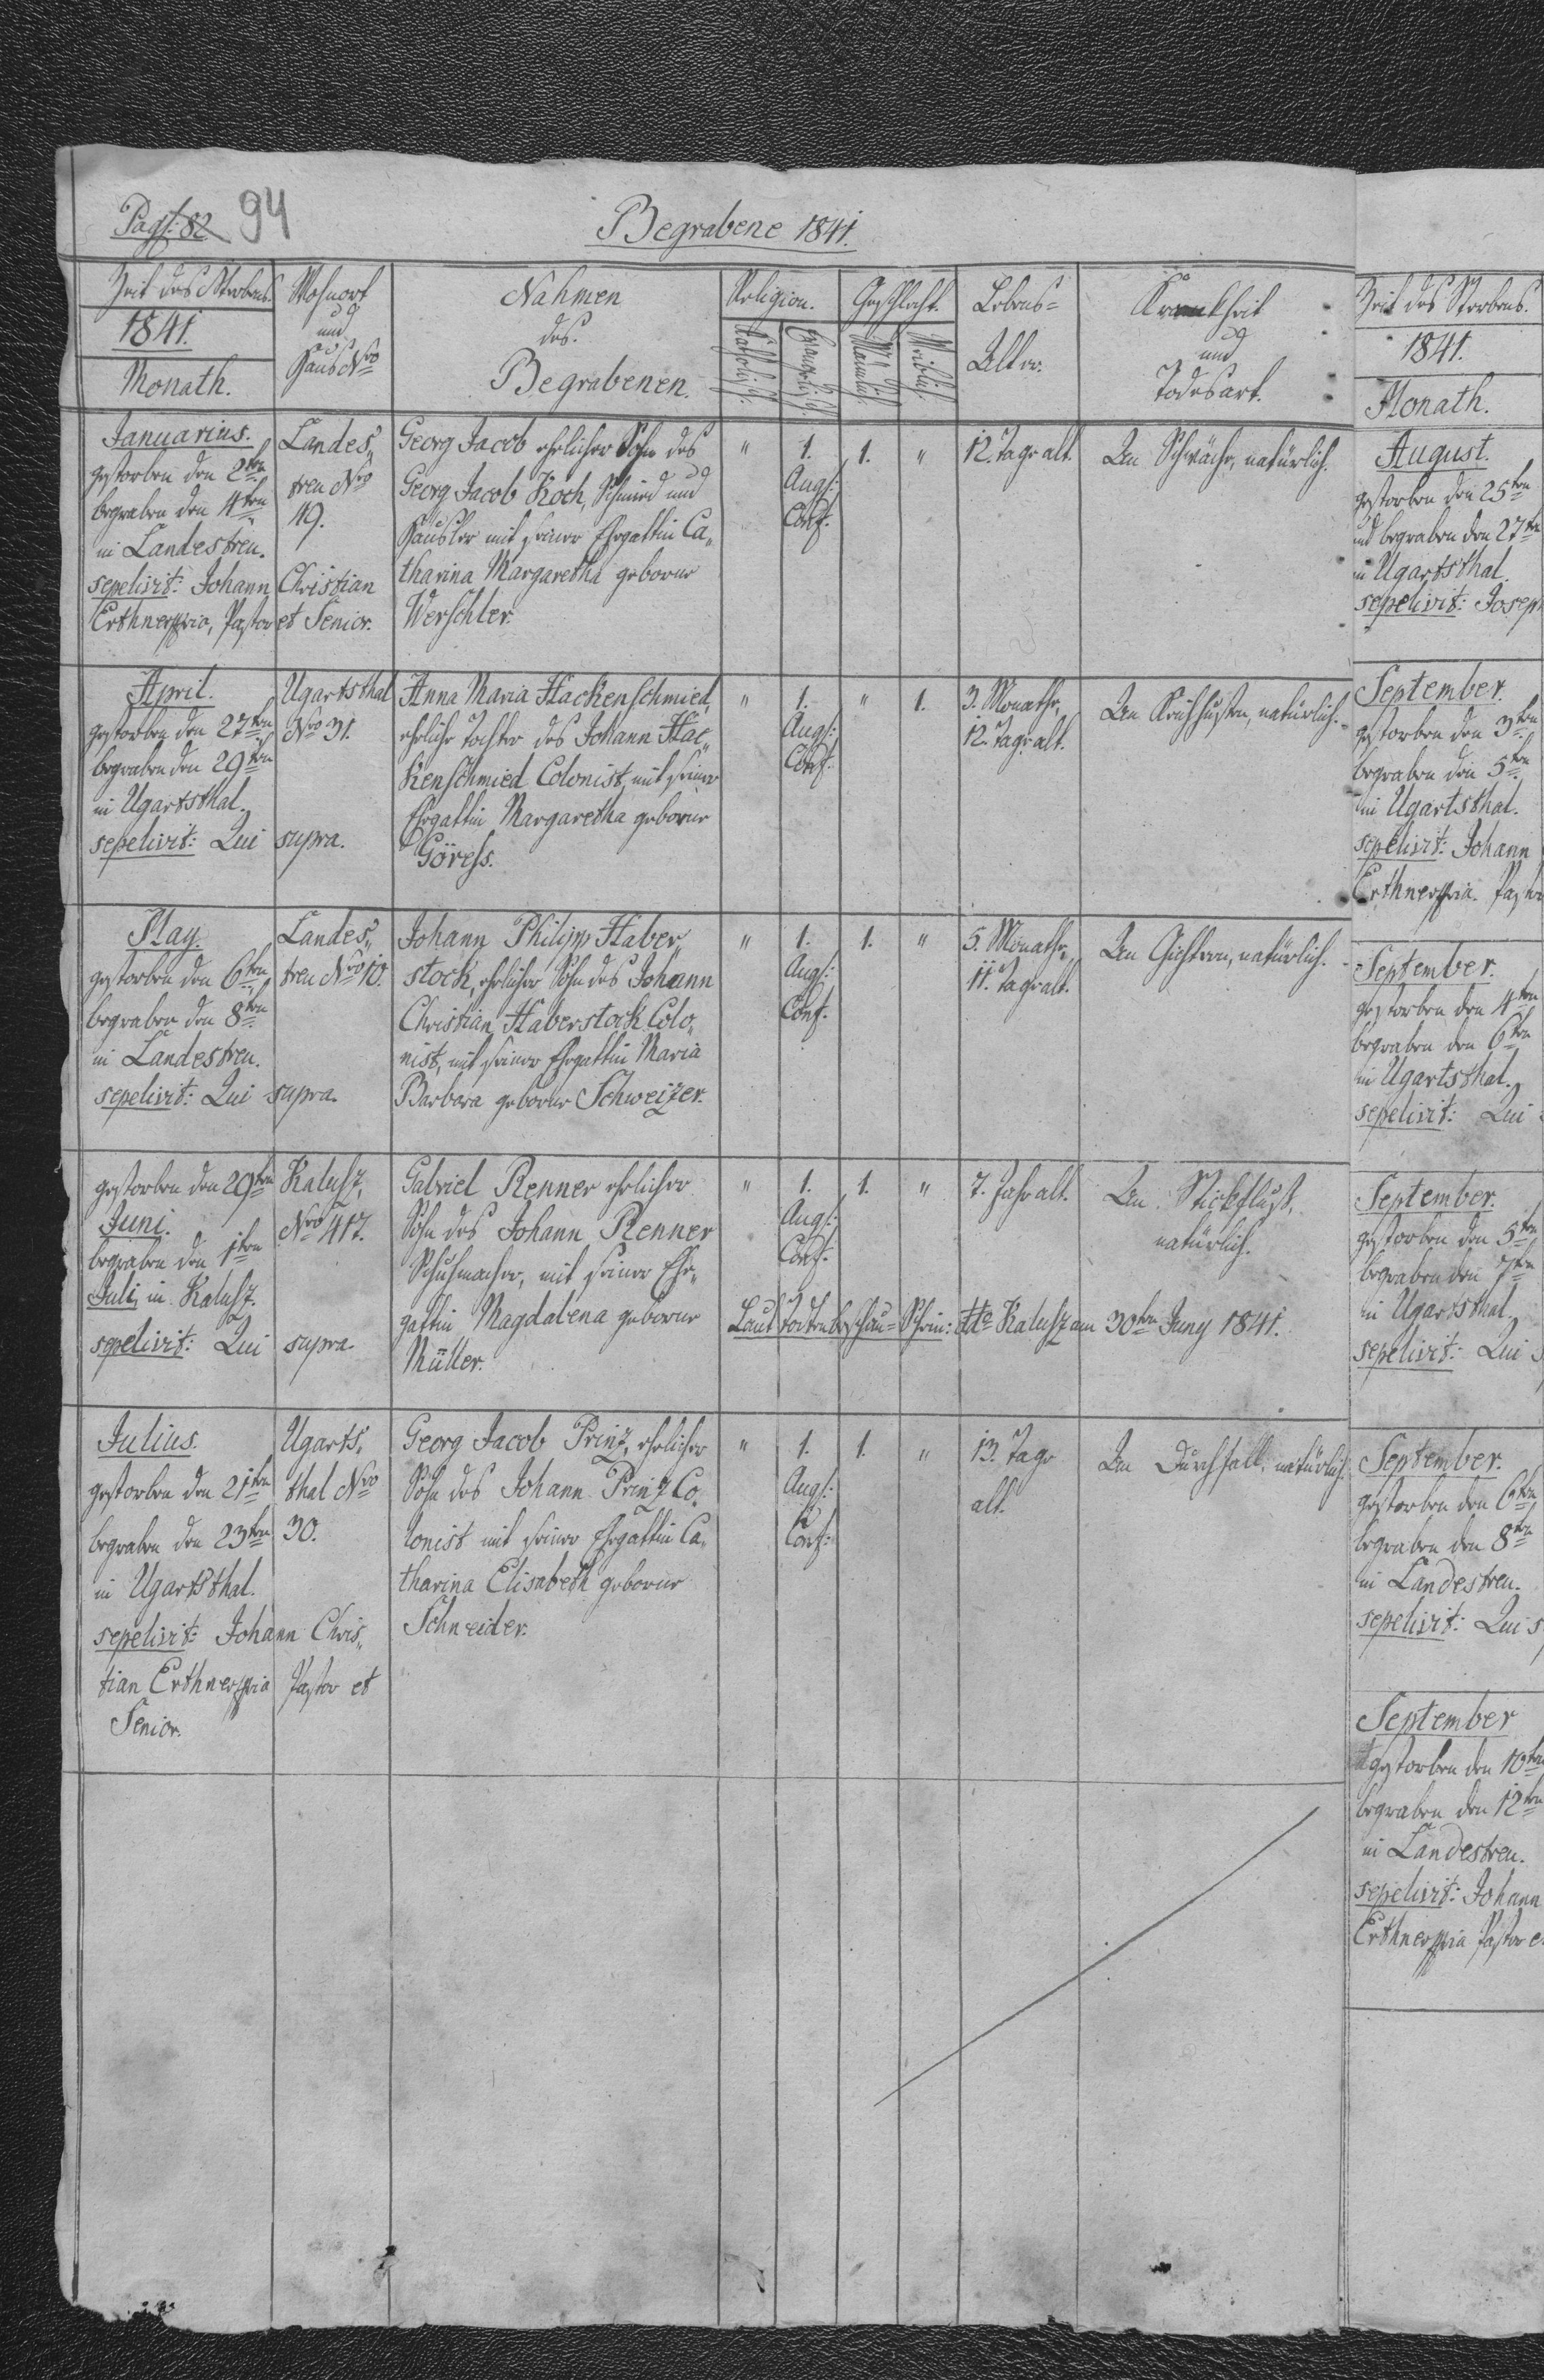 Pag: 82 94
Begrabene 1841.
Zeit des Sterbens.
1841.
Monath.
Wohnort
und
Haus Nro
Nahmen
des
Begrabenen.
Religion.
Katholisch.
Evangelisch.
Geschlecht.
Männlich.
Weiblich.
Lebens=
Alter.
Krankheit
und
Todesart.
Januarius.
gestorben den 2ten
begraben den 4ten
in Landestreu.
sepelivit: Johann Christian
Erthner ppria, Pastor et Senior.
Landes„
treu Nro
49.
Georg Jacob ehelicher Sohn des
Georg Jacob Koch, Schmied und
Häusler mit seiner Ehegattin Ca„
tharina Margaretha geborne
Werschler.
" 1. 1. "
Augs:
Conf.
12. Tage alt.
An Schwäche, natürlich.
April.
gestorben den 27ten
begraben den 29ten
in Ugartsthal.
sepelivit: Qui supra.
Ugartsthal
Nro 31.
Anna Maria Hackenschmied,
ehliche Tochter des Johann Hac„
kenschmied Colonist, mit seiner
Ehegattin Margaretha geborne
Göress.
" 1. " 1.
Augs:
Conf.
3. Monathe,
12. Tage alt.
An Keichhusten, natürlich.
May.
gestorben den 6ten
begraben den 8ten
in Landestreu.
sepelivit: Qui supra.
Landes„
treu Nro 10.
Johann Philipp Haber„
stock, ehelicher Sohn des Johann
Christian Haberstock Colo„
nist, mit seiner Ehegattin Maria
Barbara geborne Schweizer.
" 1. 1. "
Augs:
Conf.
5. Monathe,
11. Tage alt.
An Gichtern, natürlich.
gestorben den 29ten
Juni.
begraben den 1ten
Juli, in Kalusz.
sepelivit: Qui supra.
Kalusz,
Nro 417.
Gabriel Renner ehelicher
Sohn des Johann Renner
Schuhmacher, mit seiner Ehe„
gattin Magdalena geborne
Müller.
" 1. 1. "
Augs:
Conf.
7. Jahr alt.
An Stickfluß,
natürlich.
Laut Todtenbeschau=Schein: dto Kalusz am 30ten Juny 1841.
Julius.
gestorben den 21ten
begraben den 23ten
in Ugartsthal.
sepelivit: Johann Chris„
tian Erthner ppria Pastor et
Senior.
Ugarts„
thal Nro
30.
Georg Jacob Prinz, ehelicher
Sohn des Johann Prinz Co„
lonist mit seiner Ehegattin Ca„
tharina Elisabeth geborne
Schneider.
" 1. 1. "
Augs:
Conf:
13. Tage
alt.
An Durchfall, natürlich.
Zeit des Sterbens.
1841.
Monath.
August.
gestorben den 25ten
und begraben den 27ten
in Ugartsthal.
sepelivit: Joseph
September.
gestorben den 3ten
begraben den 5ten
in Ugartsthal.
sepelivit: Johann
Erthner ppria. Pastor
September.
gestorben den 4ten
begraben den 6ten
in Ugartsthal.
sepelivit: Qui
September.
gestorben den 5ten
begraben den 7ten
in Ugartsthal.
sepelivit: Qui s
September.
gestorben den 6ten
begraben den 8ten
in Landestreu.
sepelivit: Qui s
September
gestorben den 10ten
begraben den 12ten
in Landestreu.
sepelivit: Johann
Erthner ppria Pastor e